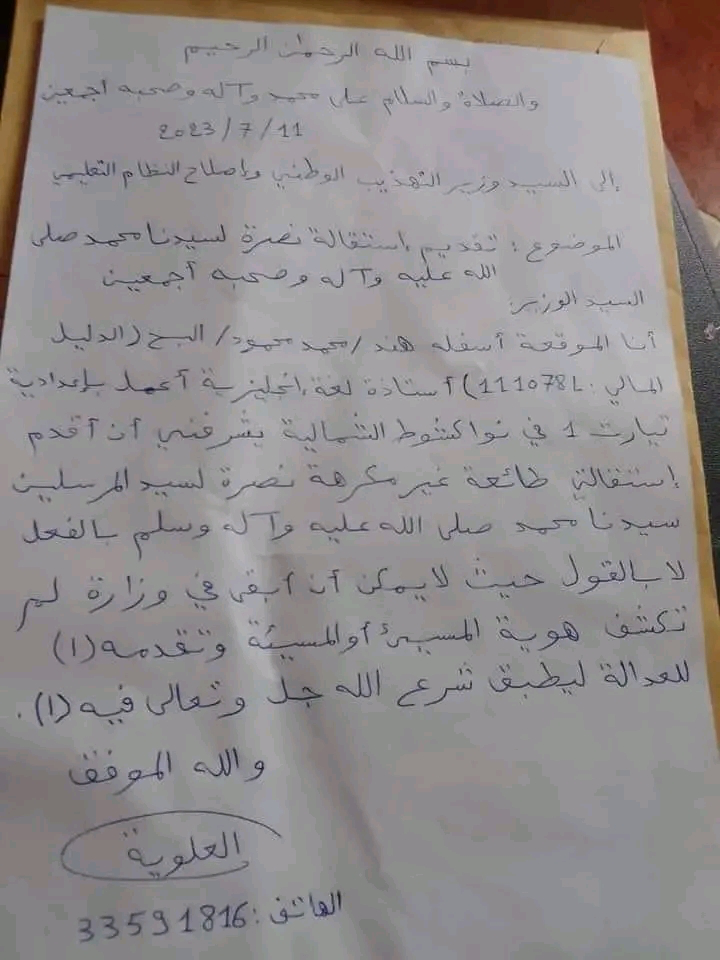 بسم الله الرحمان الرحيم
والصلاة والسلام على محمد وآله وصحبه أجمعين
2023/7/11
إلى السيد وزير التهذيب الوطني وإصلاح النظام التعليمي
الموضوع: تقديم إستقالة نصرة لسيدنا محمد صلى
الله عليه وآله وصحبه أجمعين
السيد الوزير:
أنا الموقعة أسفله هند /محمد محمود/ البح (الدليل
المالي: 111078L) أستاذة لغة إنجليزية أعمل بإعدادية
تيارت 1 في نواكشوط الشمالية يشرفني أن أقدم
إستقالتي طائعة غير مكرهة نصرة لسيد المرسلين
سيدنا محمد صلى الله عليه وآله وسلم بالفعل
لا بالقول حيث لا يمكن أن أبقى في وزارة لم
تكشف هوية المسيئ أو المسيئة وتقدمه(ا)
للعدالة ليطبق شرع الله جل وتعالى فيه(ا).
والله الموفق
العلوية
الهاتف: 33591816